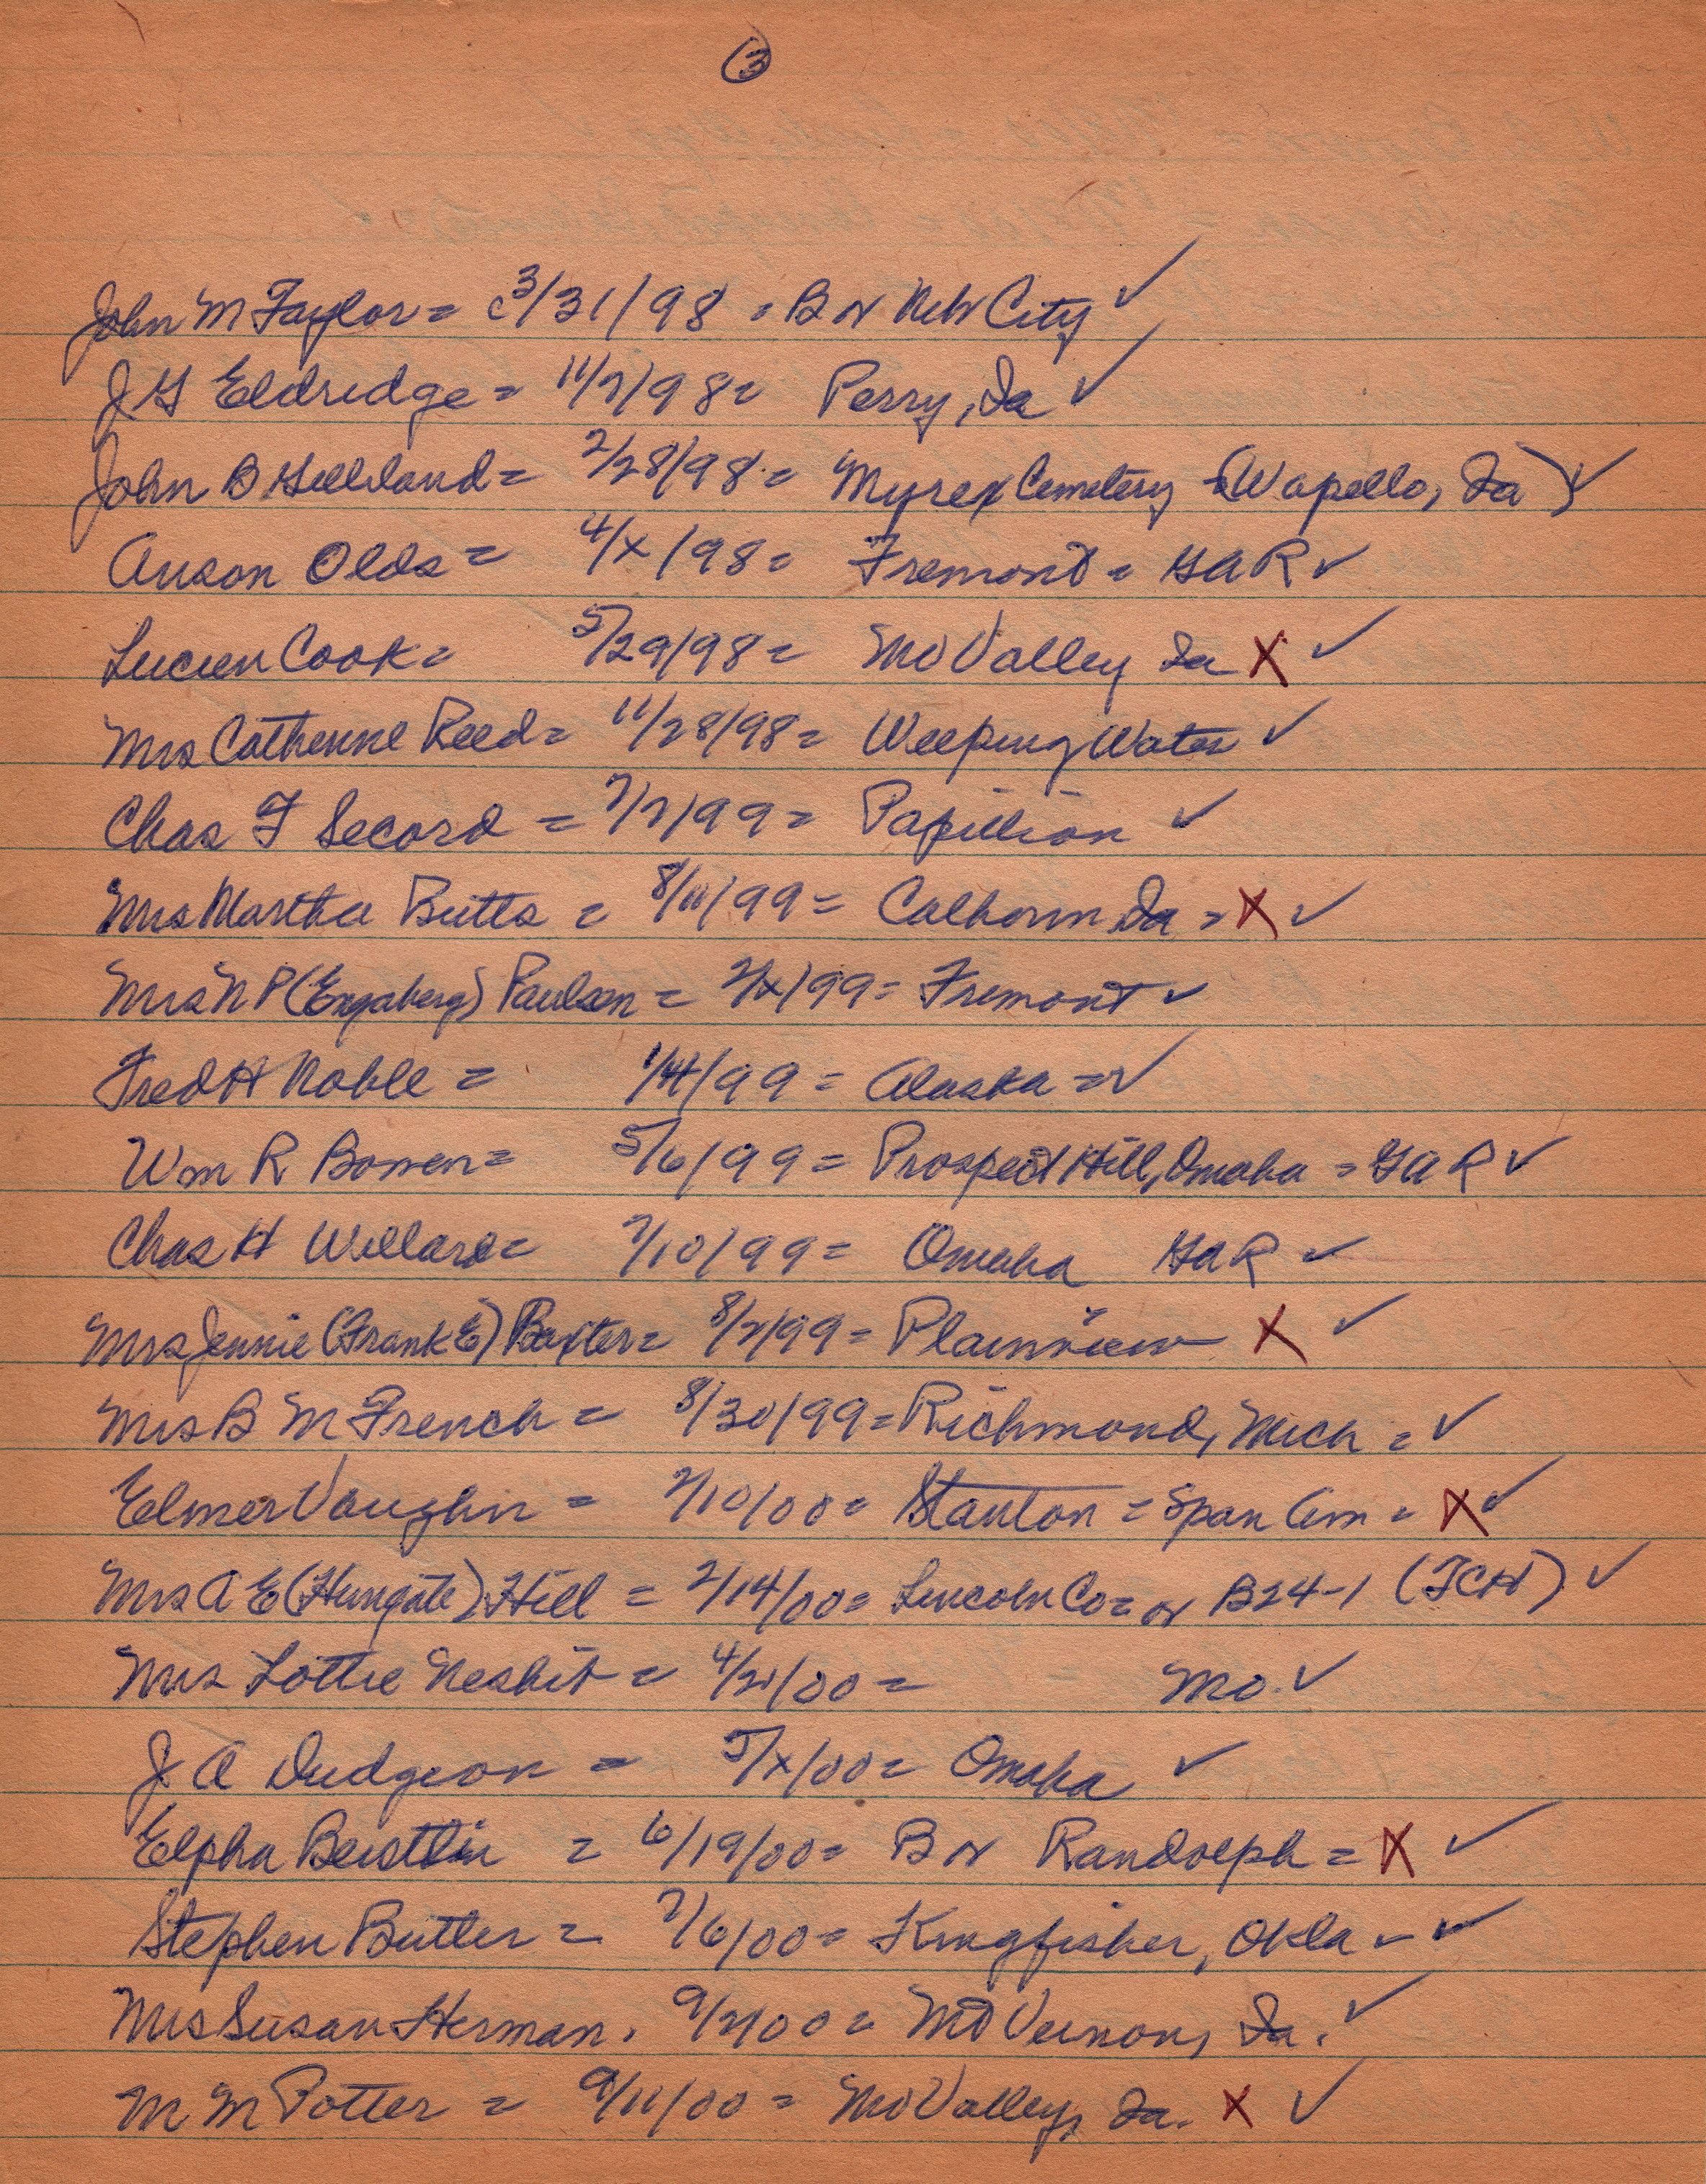 3
John M Taylor = 3/31/98 = B or Neb City ✓
J G Eldridge = 11/7/98 = Perry, Ia ✓
John B Gilliland = 2/28/98 = Myrex Cemetery (Wapello, Ia) ✓
Anson Olds = 4/x/98 = Fremont = GAR ✓
Lucien Cook = 5/29/98 = Mo Valley Ia X ✓
Mrs Catherine Reed = 11/28/98 = Weeping Water ✓
Chas F Secord = 7/7/99 = Papillion ✓
Mrs Martha Butts = 8/11/99 = Calhoun Ia = X ✓
Mrs N P (Engaberg) Paulsen = 2/x/99 = Fremont ✓
Fred H Noble = 99 = Alaska = ✓
Wm R Bowen = 5/6/99 = Prospect Hill, Omaha = GAR ✓
Chas H Willard = 7/10/99 = Omaha GAR ✓
Mrs Jennie (Frank E) Baxter = 8/2/99 = Plainview X ✓
Mrs B M French = 8/30/99 = Richmond, Mich = ✓
Elmer Vaughn = 2/10/00 = Stanton = Span Am = X ✓
Mrs A E (Hungate) Hill = 2/14/00 = Lincoln Co = or B24-1 (TCH) ✓
Mrs Lottie Nesbit = 4/21/00 = Mo. ✓
J A Dudgeon = 5/x/00 = Omaha ✓
Elpha = 6/19/00 = B or Randolph = X ✓
Stephen Butler = 7/6/00 = Kingfisher, Okla - ✓
Mrs Susan Herman. 9/2/00 = Mt Vernon, Ia. ✓
M M Potter = 9/11/00 = Mo Valley, Ia. X ✓